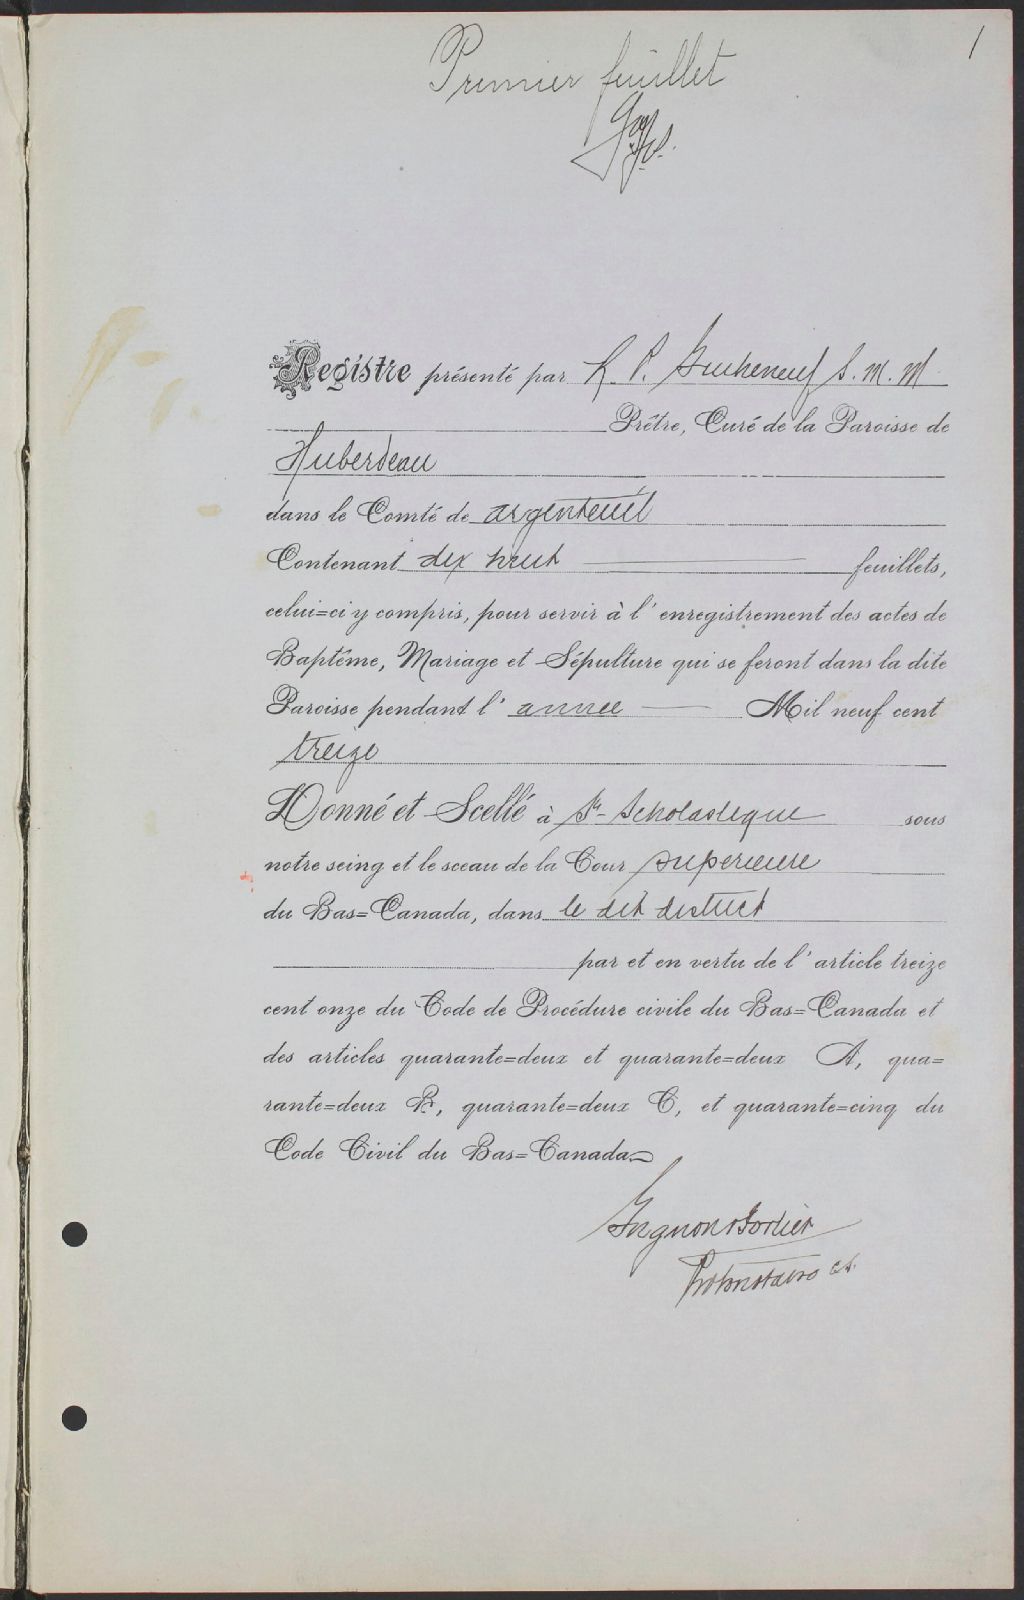 1
Premier feuillet
Registre présenté par R. P. S. M. M.
Prêtre, Curé de la Paroisse de
Huberdeau
dans le Comté de argenteuil
Contenant dix huit feuillets,
celui=ci y compris, pour servir à l'enregistrement des actes de
Baptême, Mariage et Sépulture qui se feront dans la dite
Paroisse pendant l'année Mil neuf cent
treize
Donné et Scellé à Ste Scholastique sous
notre seing et le sceau de la Cour superieure
du Bas=Canada, dans le dit district
par et en vertu de l'article treize
cent onze du Code de Procédure civile du Bas=Canada et
des articles quarante=deux et quarante=deux A, qua=
rante=deux B, quarante=deux C, et quarante=cinq du
Code Civil du Bas=Canada
Grignon & Fortier
Protonotaire C.S.